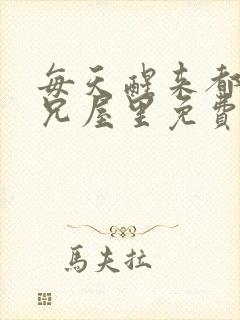 每天醒来都
兄屋里免費
馬夫拉